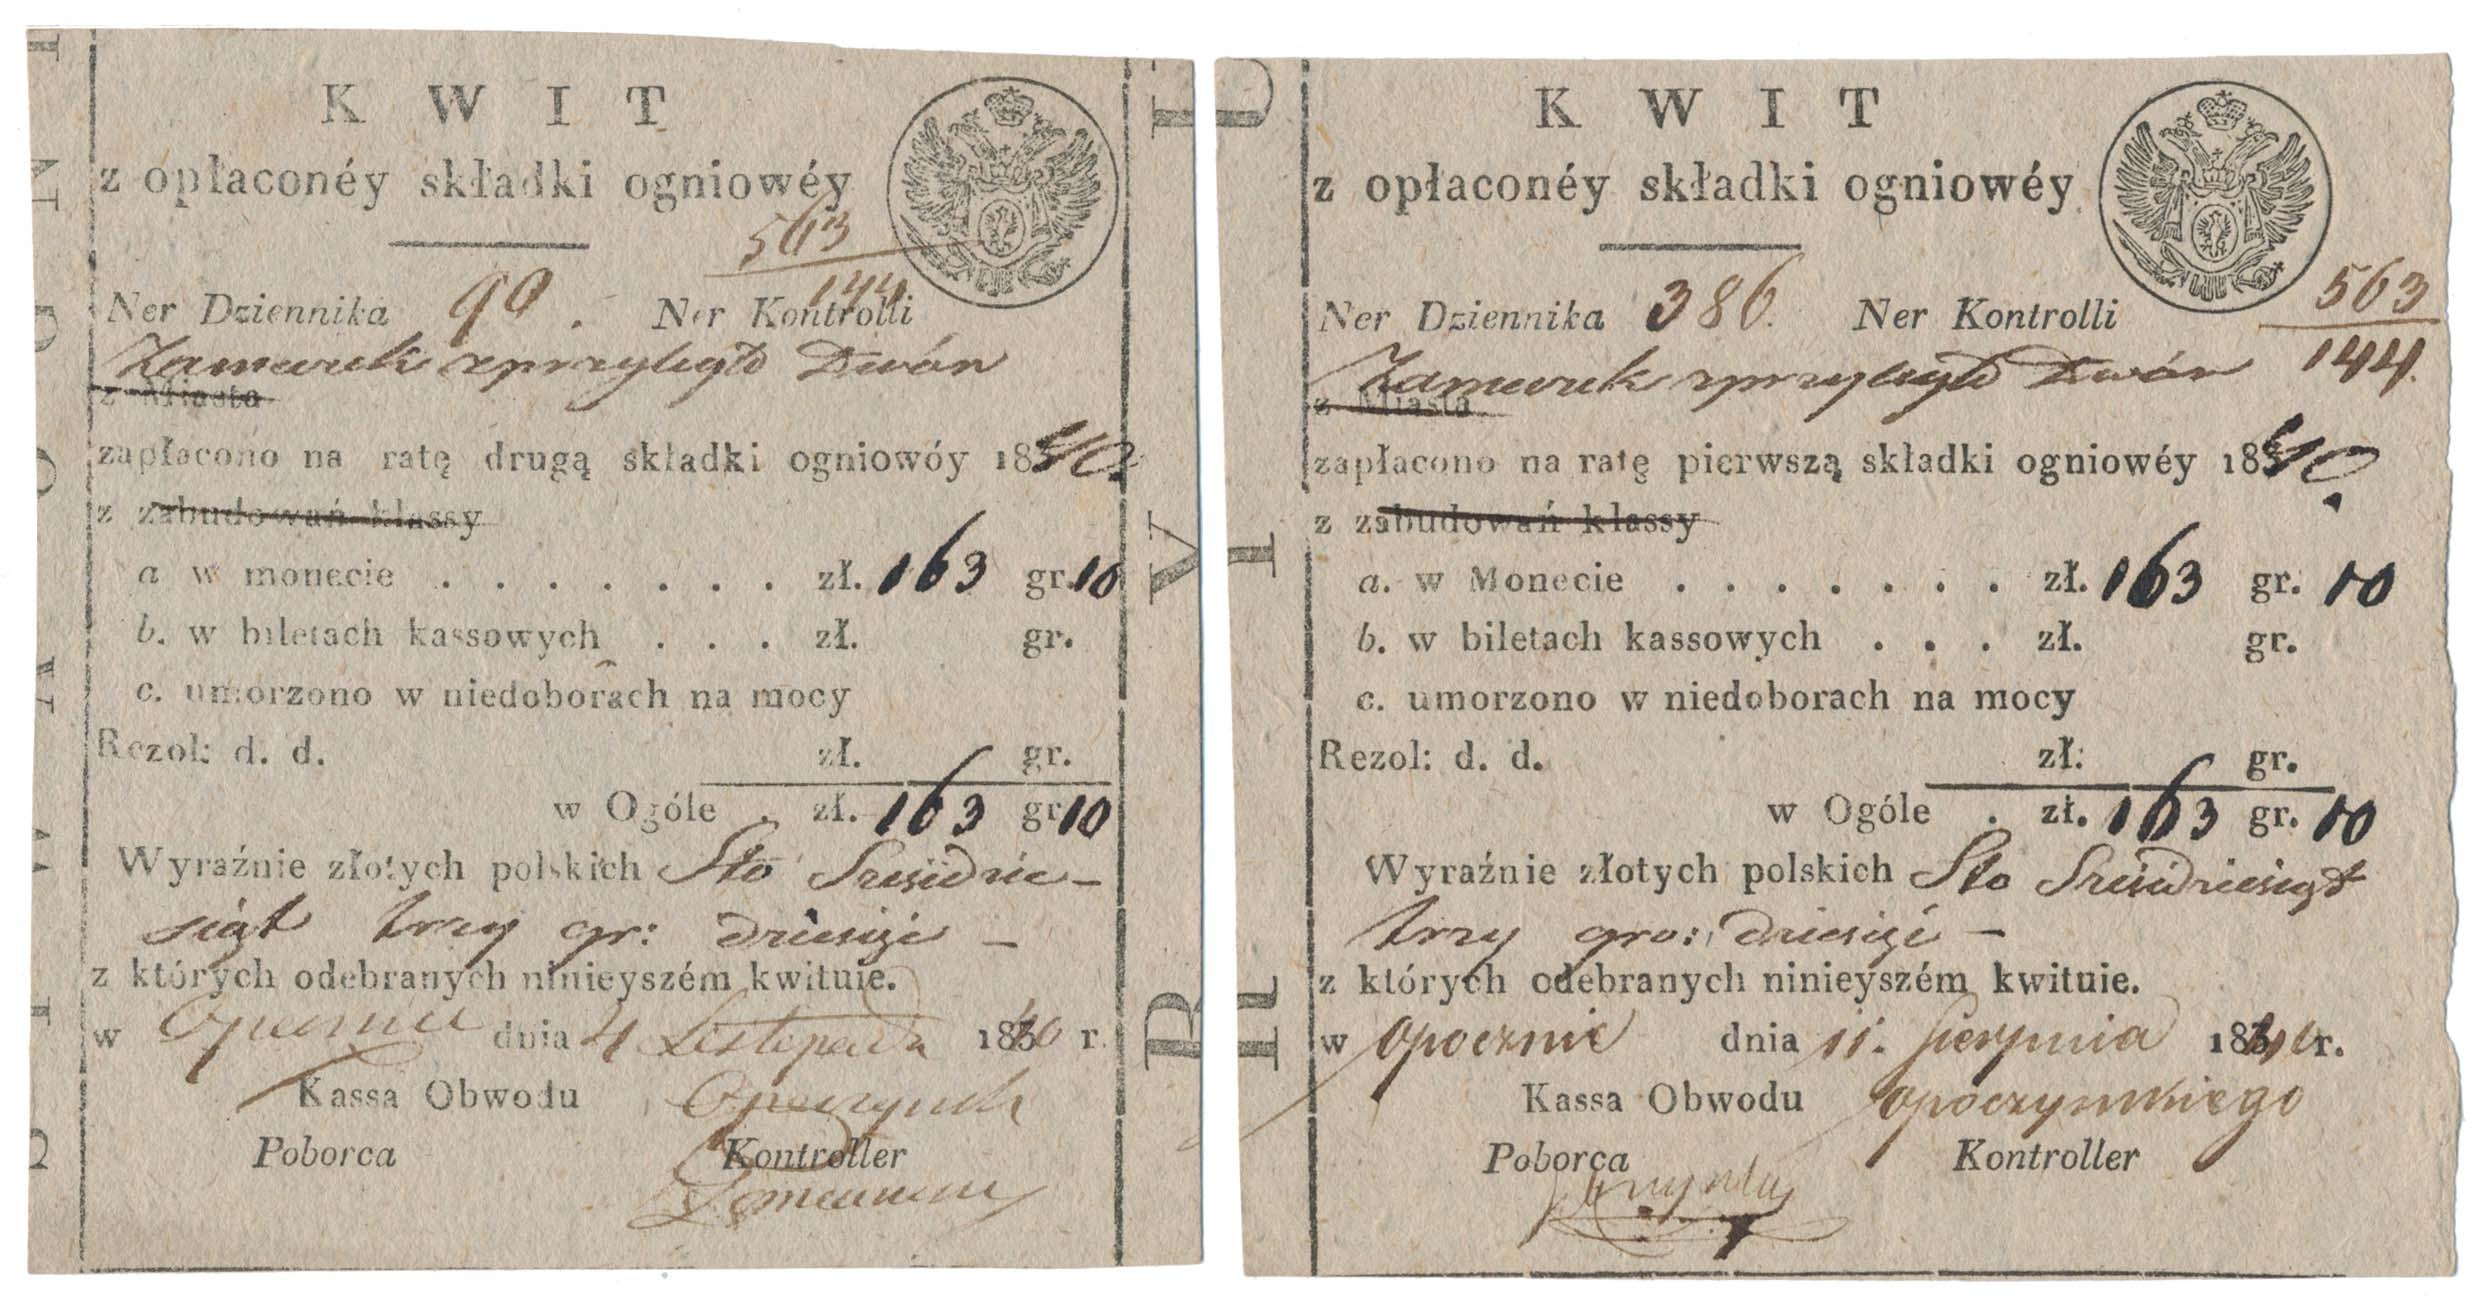 KWIT
z opłaconéy składki ogniowéy
563
144
Ner Dziennika 90. Ner Kontrolli
Zameczek z przyległ Dwór
z Miasta
zapłacono na ratę drugą składki ogniowóy 1840.
z zabudowań klassy
a w monecie . . . . . . . zł. 163 gr. 10
b. w biletach kassowych . . . zł. gr.
c. umorzono w niedoborach na mocy
Rezol: d. d. zł. gr.
w Ogóle . zł. 163 gr 10
Wyraźnie złotych polskich Sto Sześćdzie-
siąt trzy gr: dziesięć -
z których odebranych ninieyszém kwituie.
w Opocznie dnia 4 Listopada 1840 r.
Kassa Obwodu
Poborca Kontroller
KWIT
z opłaconéy składki ogniowéy
Ner Dziennika 386. Ner Kontrolli 563
144.
Zameczek z przyległ Dwór
z Miasta
zapłacono na ratę pierwszą składki ogniowéy 1840.
z zabudowań klassy
a. w Monecie . . . . . . . zł. 163 gr. 10
b. w biletach kassowych . . . zł. gr.
c. umorzono w niedoborach na mocy
Rezol: d. d. zł: gr.
w Ogóle . zł. 163 gr. 10
Wyraźnie złotych polskich Sto Sześćdziesiąt
trzy gro: dziesięć -
z których odebranych ninieyszém kwituie.
w Opocznie dnia 11. Sierpnia 1840 r.
Kassa Obwodu Opoczynskiego
Poborca Kontroller